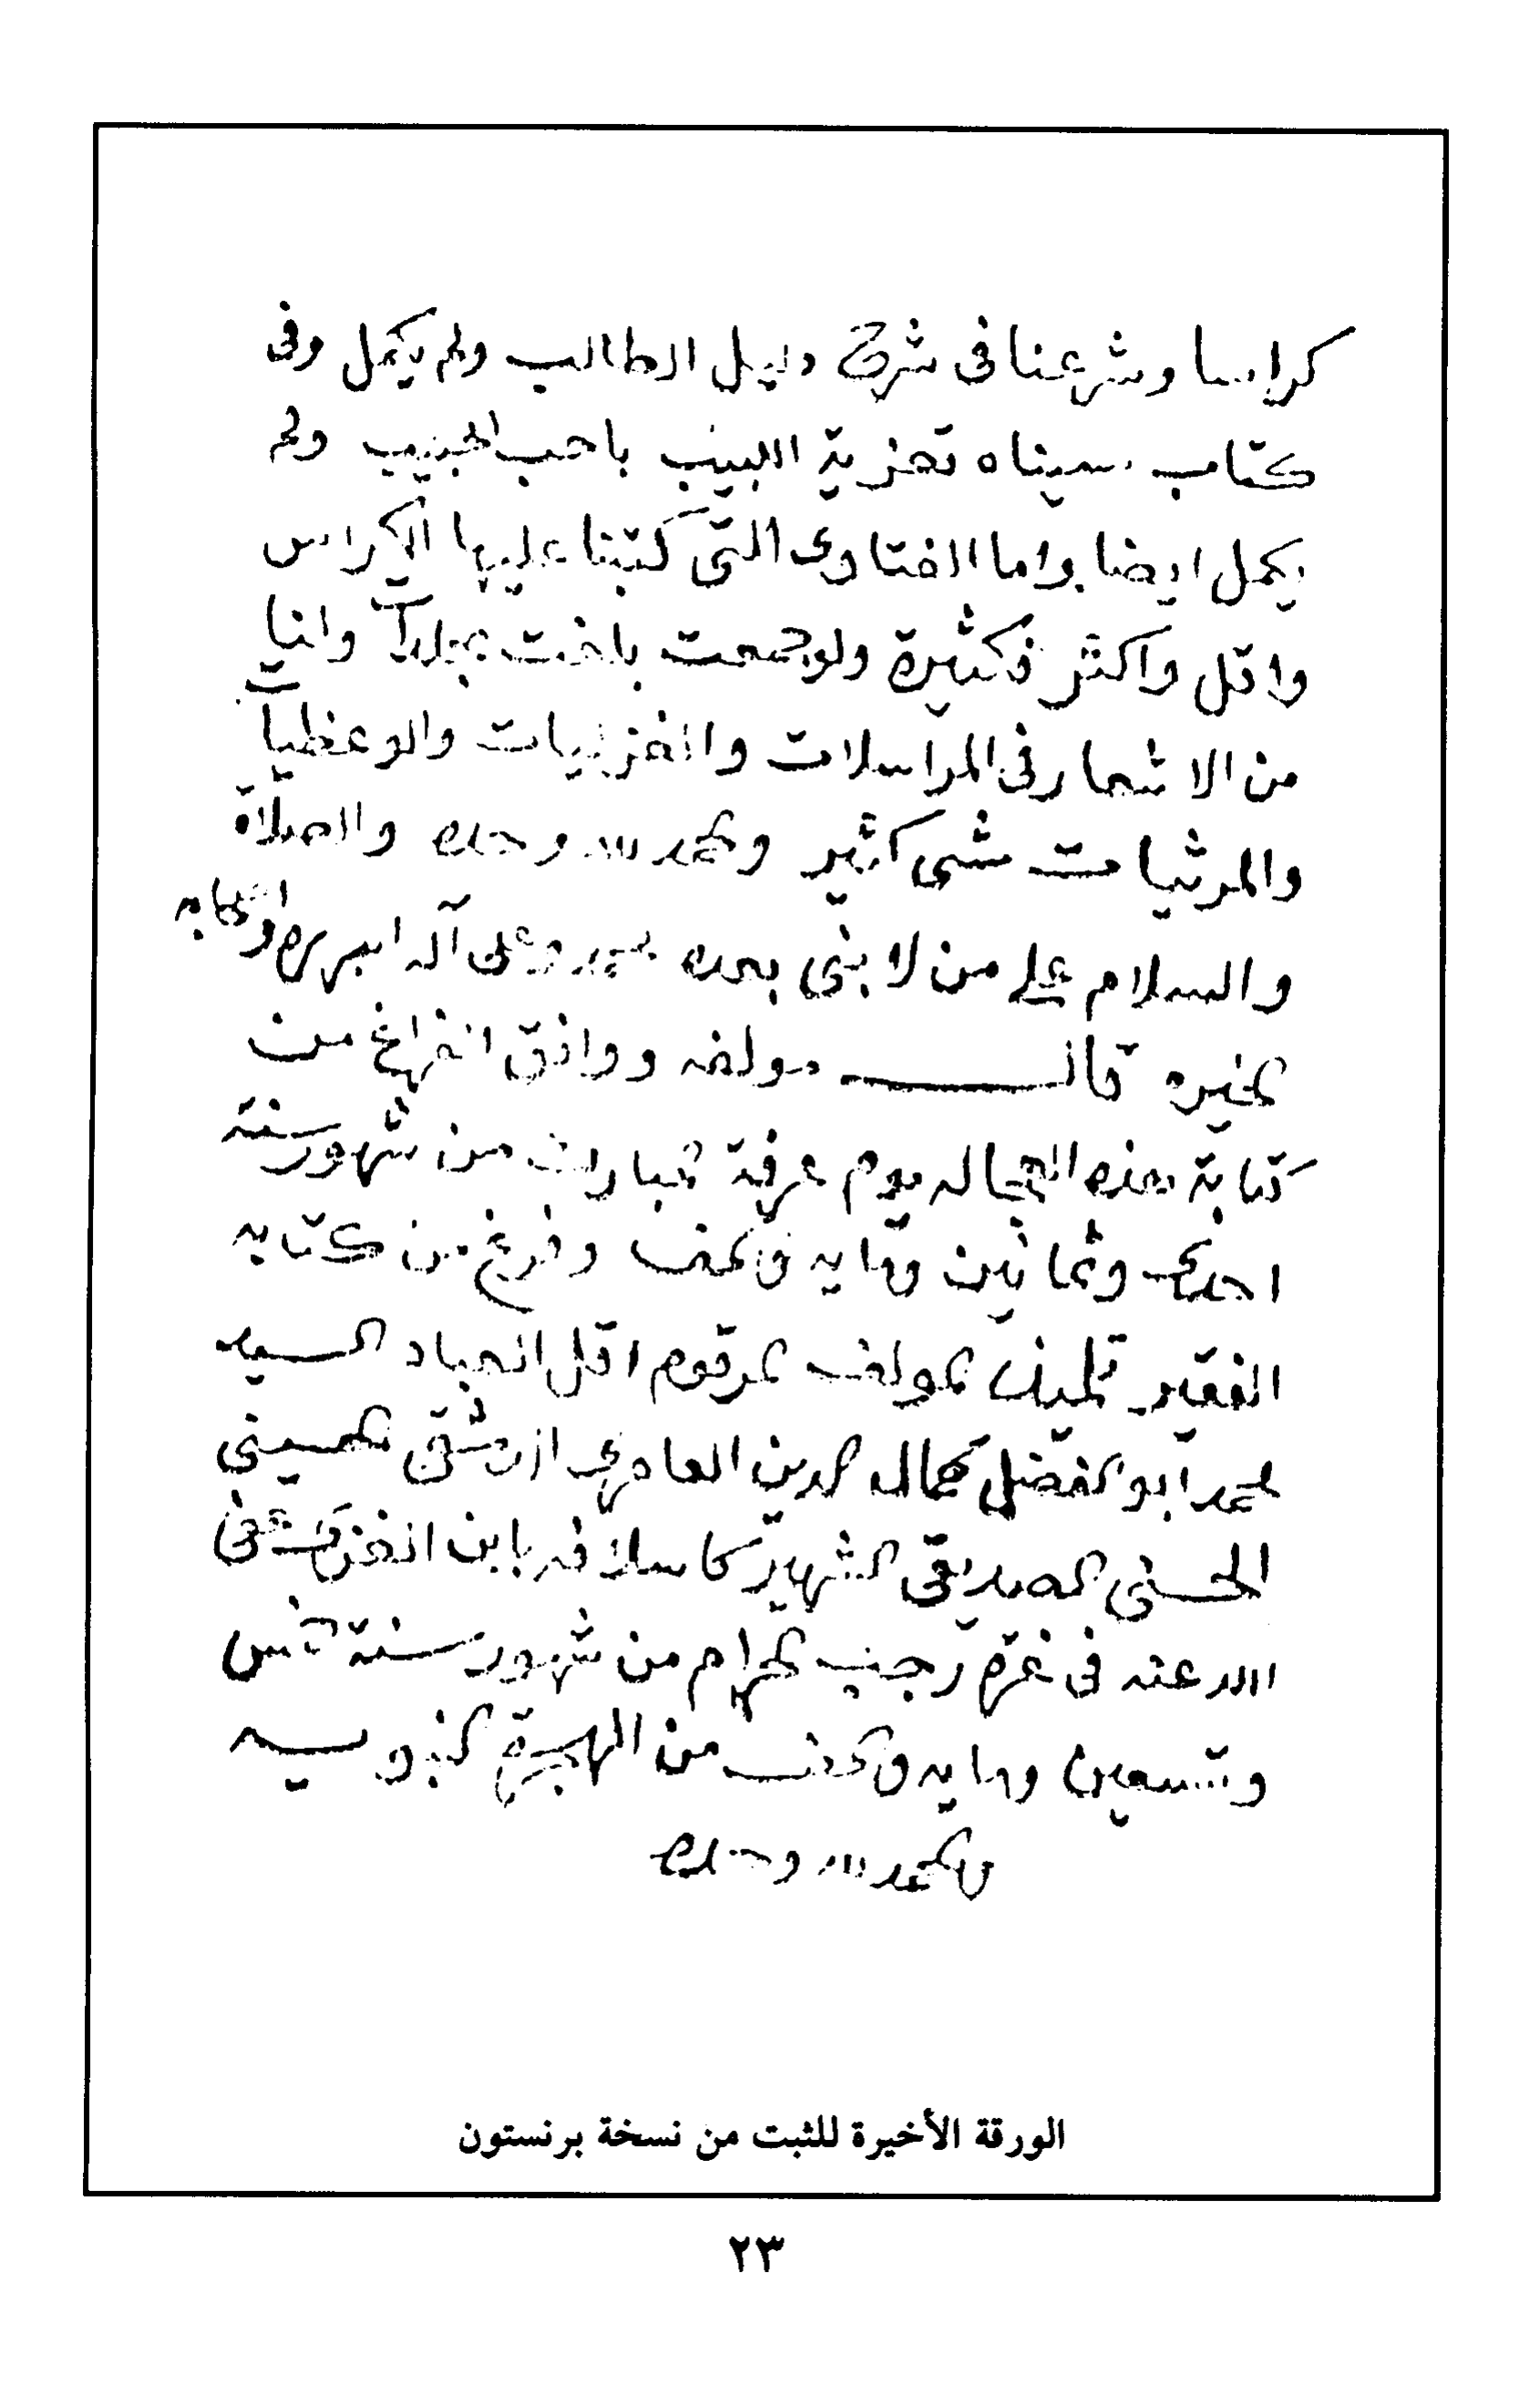 كراسا وشرعنا فى شرح دليل الطالب ولم يكمل وفى
كتاب سميناه تعزية اللبيب باحب الحبيب ولم
يكمل ايضا واما الفتاوى التى كتبنا عليها الكراس
واقل واكثر فكثيرة ولو جمعت بلغت مجلدات ولنا
من الاشعار فى المراسلات والغزليات والوعظيات
والمرثيات شى كثير والحمد لله وحده والصلاة
والسلام على من لا نبى بعده محمد وعلى آله واصحابه
قال مولفه ووافق الفراغ من
كتابة هذه العجالة يوم عرفة المبارك من شهور سنة
احدى وثمانين وماية والف وفرغ من كتابه
الفقير تلميذ المولف المرقوم اقل العباد السيد
محمد ابو الفضل كمال الدين العامرى الدمشقى الحسينى
الحسنى الصديقى الشهير كاسلافه بابن الغزى عفى
الله عنه فى غرة رجب الحرام من شهور سنة
وتسعين وماية والف من الهجرة النبويه
والحمد لله وحده
الورقة الأخيرة للثبت من نسخة برنستون
٢٣